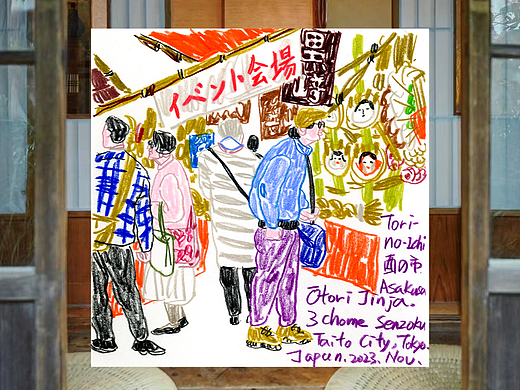 イベント会場
Tori-
no-Ichi
酉の市
Asakusa
Ōtori Jinja.
3 chome Senzoku
Taito City, Tokyo.
Japan. 2023. Nov.